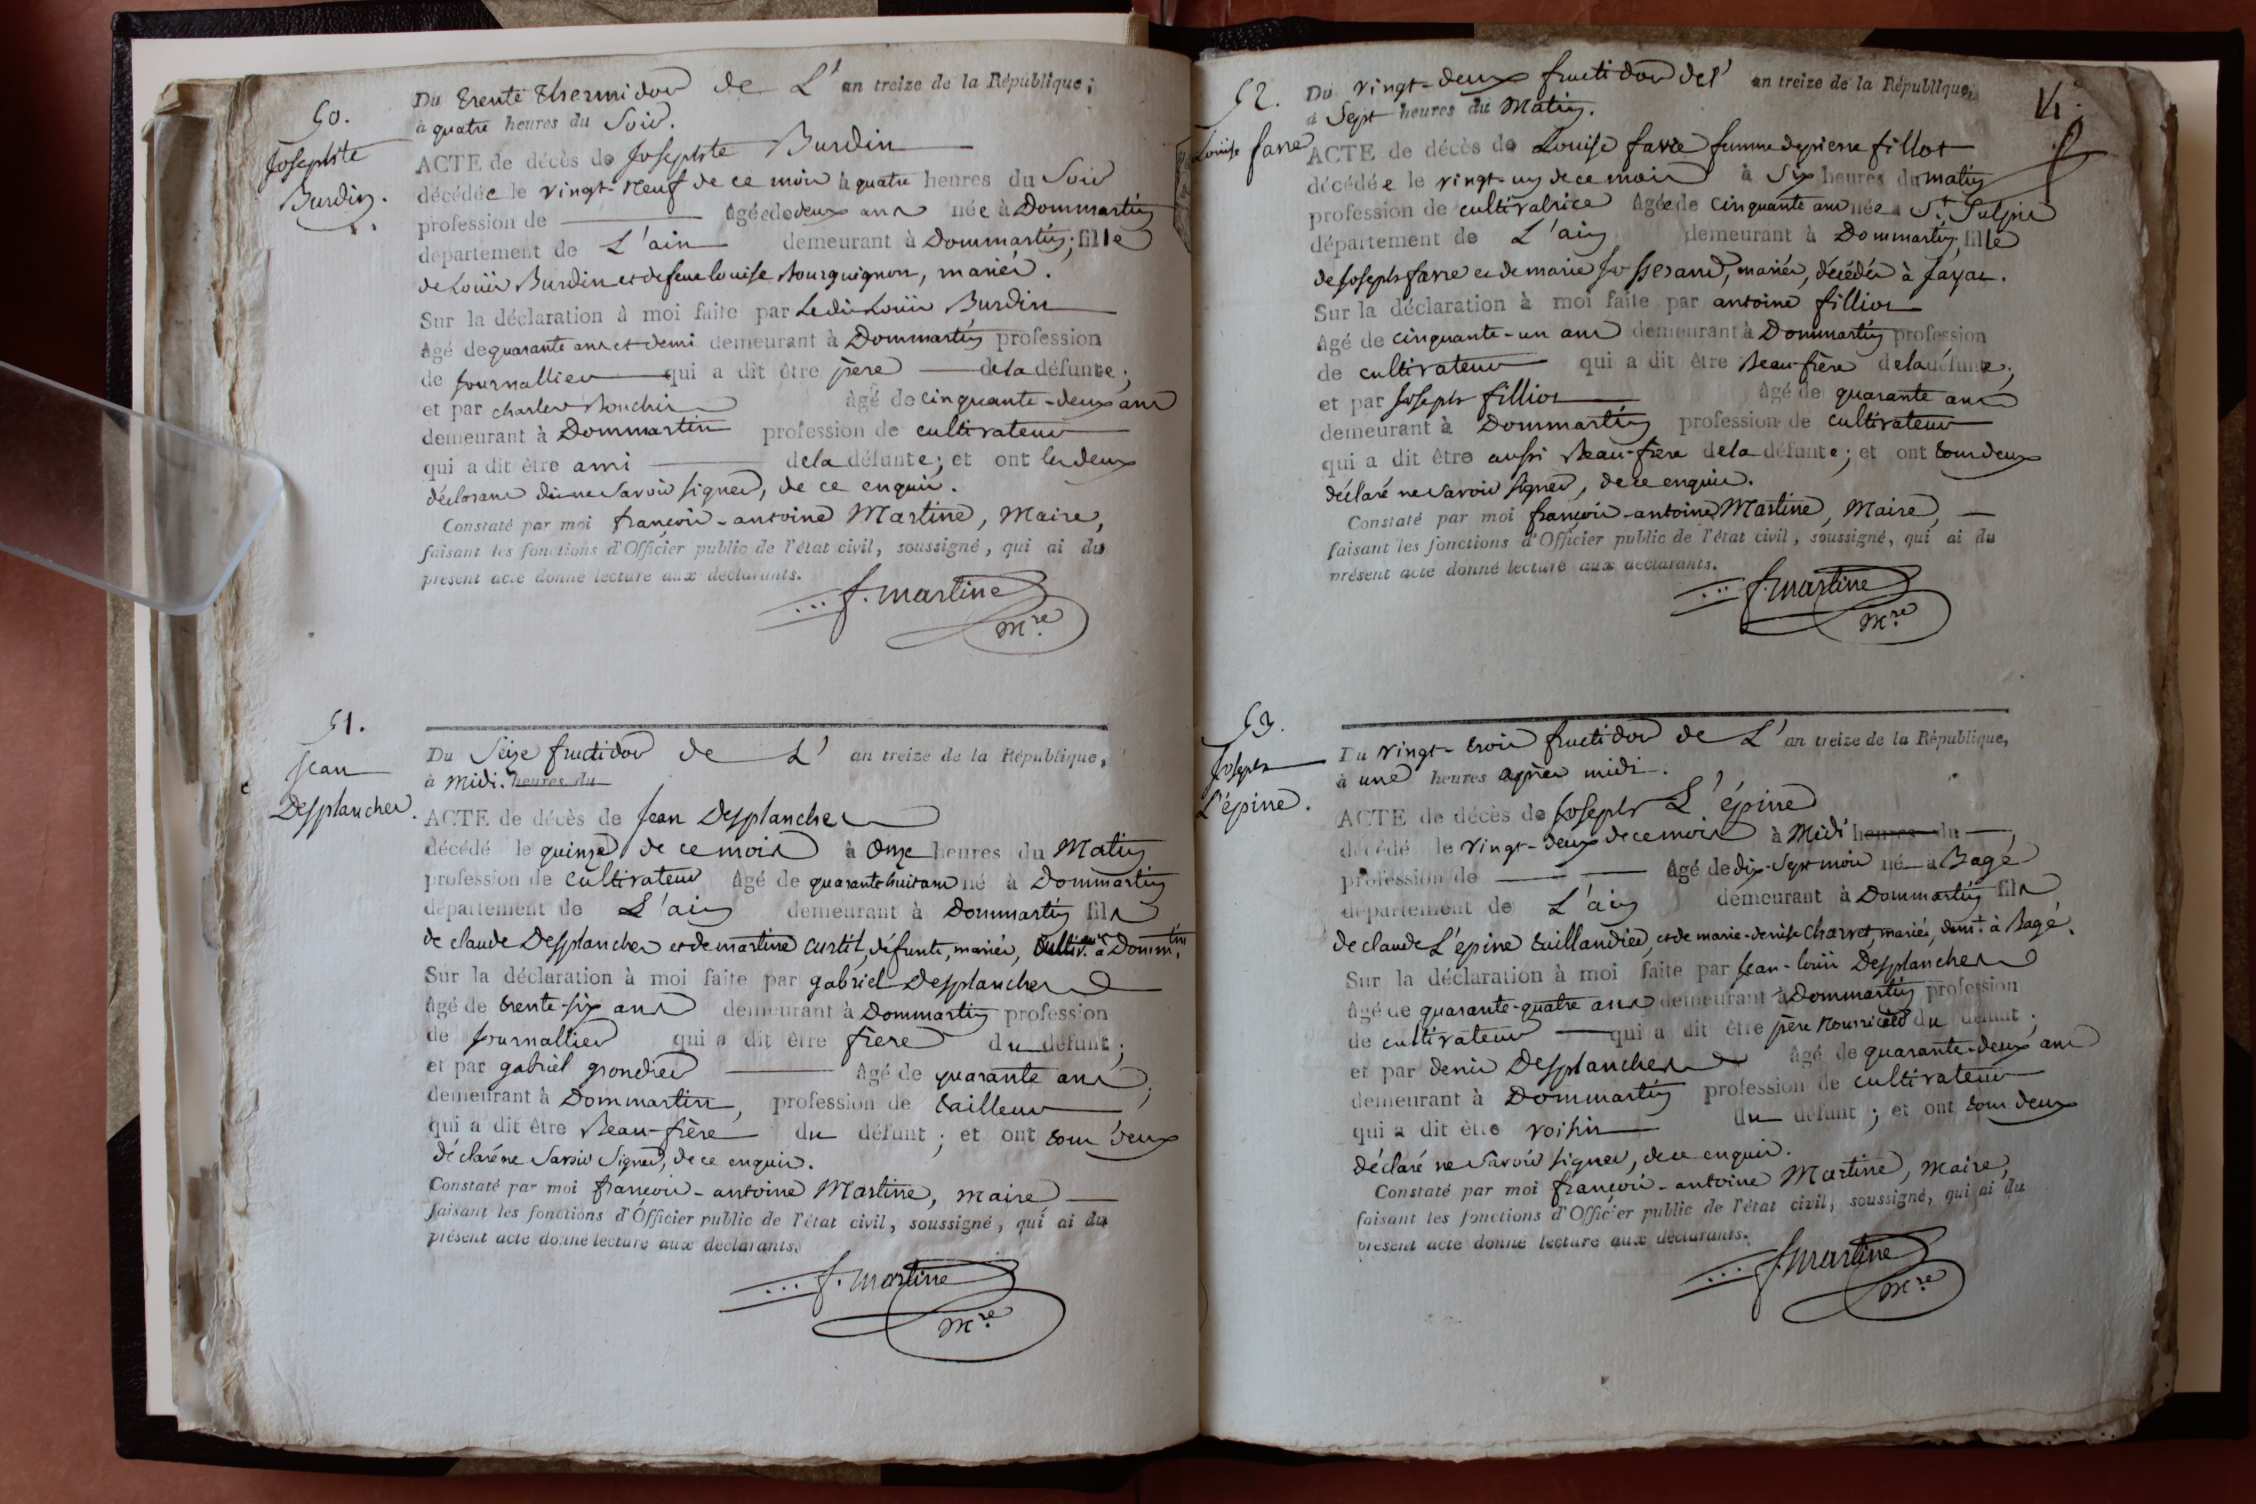 50.
Josephte
Burdin.
Du trente thermidor de L' an treize de la République;
à quatre heures du Soir.
ACTE de décès de Josephte Burdin
décédée le vingt-neuf de ce mois à quatre heures du Soir
profession de âgée de deux ans née à Dommartin
département de L'ain demeurant à Dommartin; fille
de Louis Burdin et de feue Louise Bourguignon, mariés.
Sur la déclaration à moi faite par Ledit Louis Burdin
âgé de quarante ans et demi demeurant à Dommartin profession
de Journallier qui a dit être père de la défunte;
et par charles Bouchir âgé de cinquante-deux ans
demeurant à Dommartin profession de cultivateur
qui a dit être ami de la défunte; et ont les deux
déclarans dit ne Savoir signer, de ce enquis.
Constaté par moi françois-antoine Martine, Maire,
faisant les fonctions d'Officier public de l'état civil, soussigné, qui ai du
présent acte donné lecture aux déclarants.
f. martine
Mre
51.
Jean
Desplanches.
Du Seize fructidor de L' an treize de la République,
à Midi. heures du
ACTE de décès de Jean Desplanches
décédé le quinze de ce mois à Onze heures du Matin
profession de cultivateur âgé de quarante huit ans né à Dommartin
département de L'ain demeurant à Dommartin fils
de claude Desplanches et de martine curtil, défunte, mariés, cultiv. à Dommtin.
Sur la déclaration à moi faite par gabriel Desplanches
âgé de trente-six ans demeurant à Dommartin profession
de Journallier qui a dit être frère du défunt;
et par gabriel grondier âgé de quarante ans,
demeurant à Dommartin, profession de tailleur
qui a dit être Beau-frère du défunt; et ont tous deux
déclaré ne Savoir Signer, de ce enquis.
Constaté par moi françois-antoine Martine, maire
faisant les fonctions d'Officier public de l'état civil, soussigné, qui ai du
présent acte donné lecture aux déclarants.
f. martine
Mre
52.
Louise favre
Du vingt-deux fructidor de l' an treize de la République,
à Sept heures du Matin.
ACTE de décès de Louise favre femme de pierre fillot
décédée le vingt-un de ce mois à Six heures du matin
profession de cultivatrice âgée de cinquante ans née à St. Sulpice
département de L'ain demeurant à Dommartin; fille
de Joseph favre et de marie Josserand, mariés, décédés à Jayat.
Sur la déclaration à moi faite par antoine fillion
âgé de cinquante-un ans demeurant à Dommartin profession
de cultivateur qui a dit être Beau-frère de la défunte;
et par Joseph fillion âgé de quarante ans
demeurant à Dommartin profession de cultivateur
qui a dit être aussi Beau-frère de la défunte; et ont tous deux
déclaré ne Savoir Signer, de ce enquis.
Constaté par moi françois-antoine Martine, Maire,
faisant les fonctions d'Officier public de l'état civil, soussigné, qui ai du
présent acte donné lecture aux déclarants.
f. martine
Mre
53.
Joseph
L'épine.
Du vingt-trois fructidor de L' an treize de la République,
à une heures après midi.
ACTE de décès de Joseph L'épine
décédé le vingt-deux de ce mois à Midi heures du
profession de âgé de dix-Sept mois né à Bagé
département de L'ain demeurant à Dommartin fils
de claude L'epine taillandier, et de marie-denise Charvet, mariés, demt. à Bagé.
Sur la déclaration à moi faite par Jean-louis Desplanches
âgé de quarante-quatre ans demeurant à Dommartin profession
de cultivateur qui a dit être père nourricier du défunt;
et par denis Desplanches âgé de quarante-deux ans
demeurant à Dommartin profession de cultivateur
qui a dit être voisin du défunt; et ont tous deux
déclaré ne Savoir signer, de ce enquis.
Constaté par moi françois-antoine Martine, maire,
faisant les fonctions d'Officier public de l'état civil, soussigné, qui ai du
présent acte donné lecture aux déclarants.
f. martine
Mre